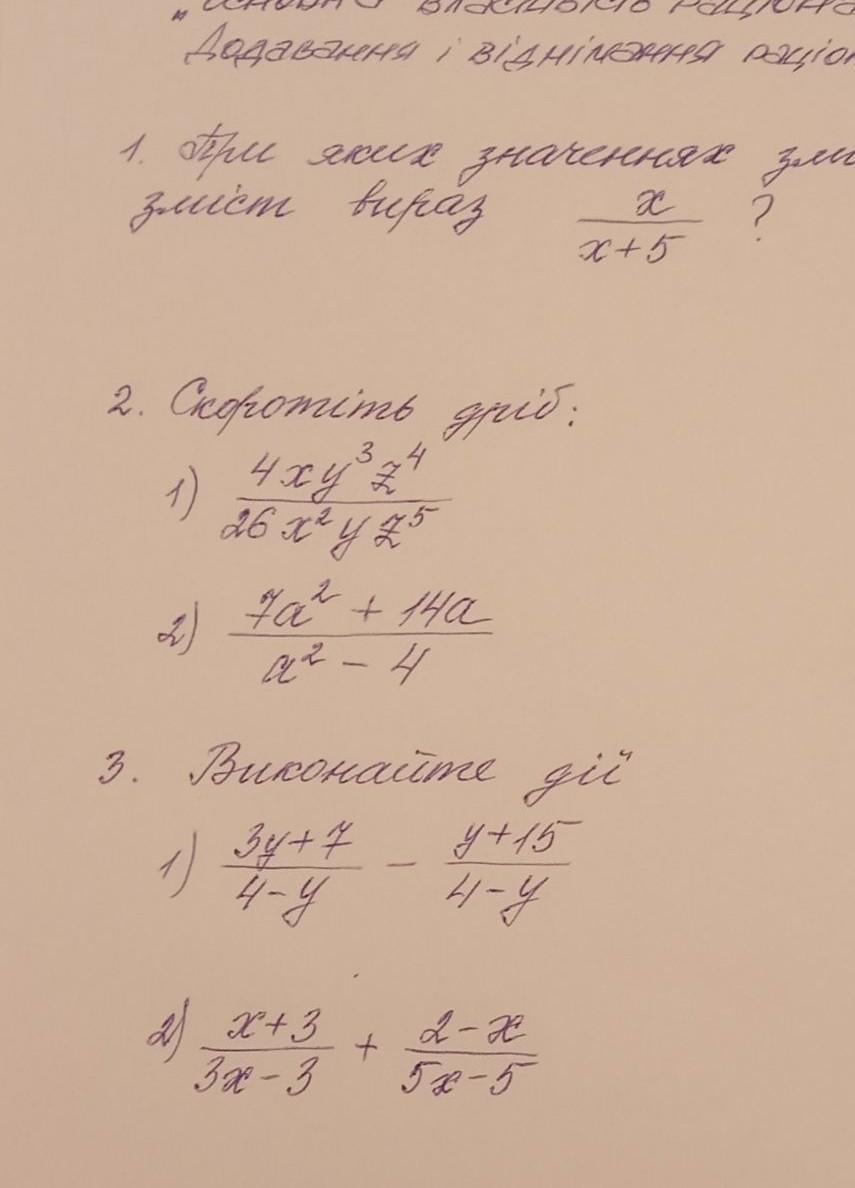 Додавання і віднімання
1. При яких значеннях
зміст вираз x/(x+5) ?
2. Скоротіть дріб:
1) 4xy³z⁴/(26x²yz⁵)
2) (7a² + 14a)/(a² - 4)
3. Виконайте дії
1) (3y+7)/(4-y) - (y+15)/(4-y)
2) (x+3)/(3x-3) + (2-x)/(5x-5)